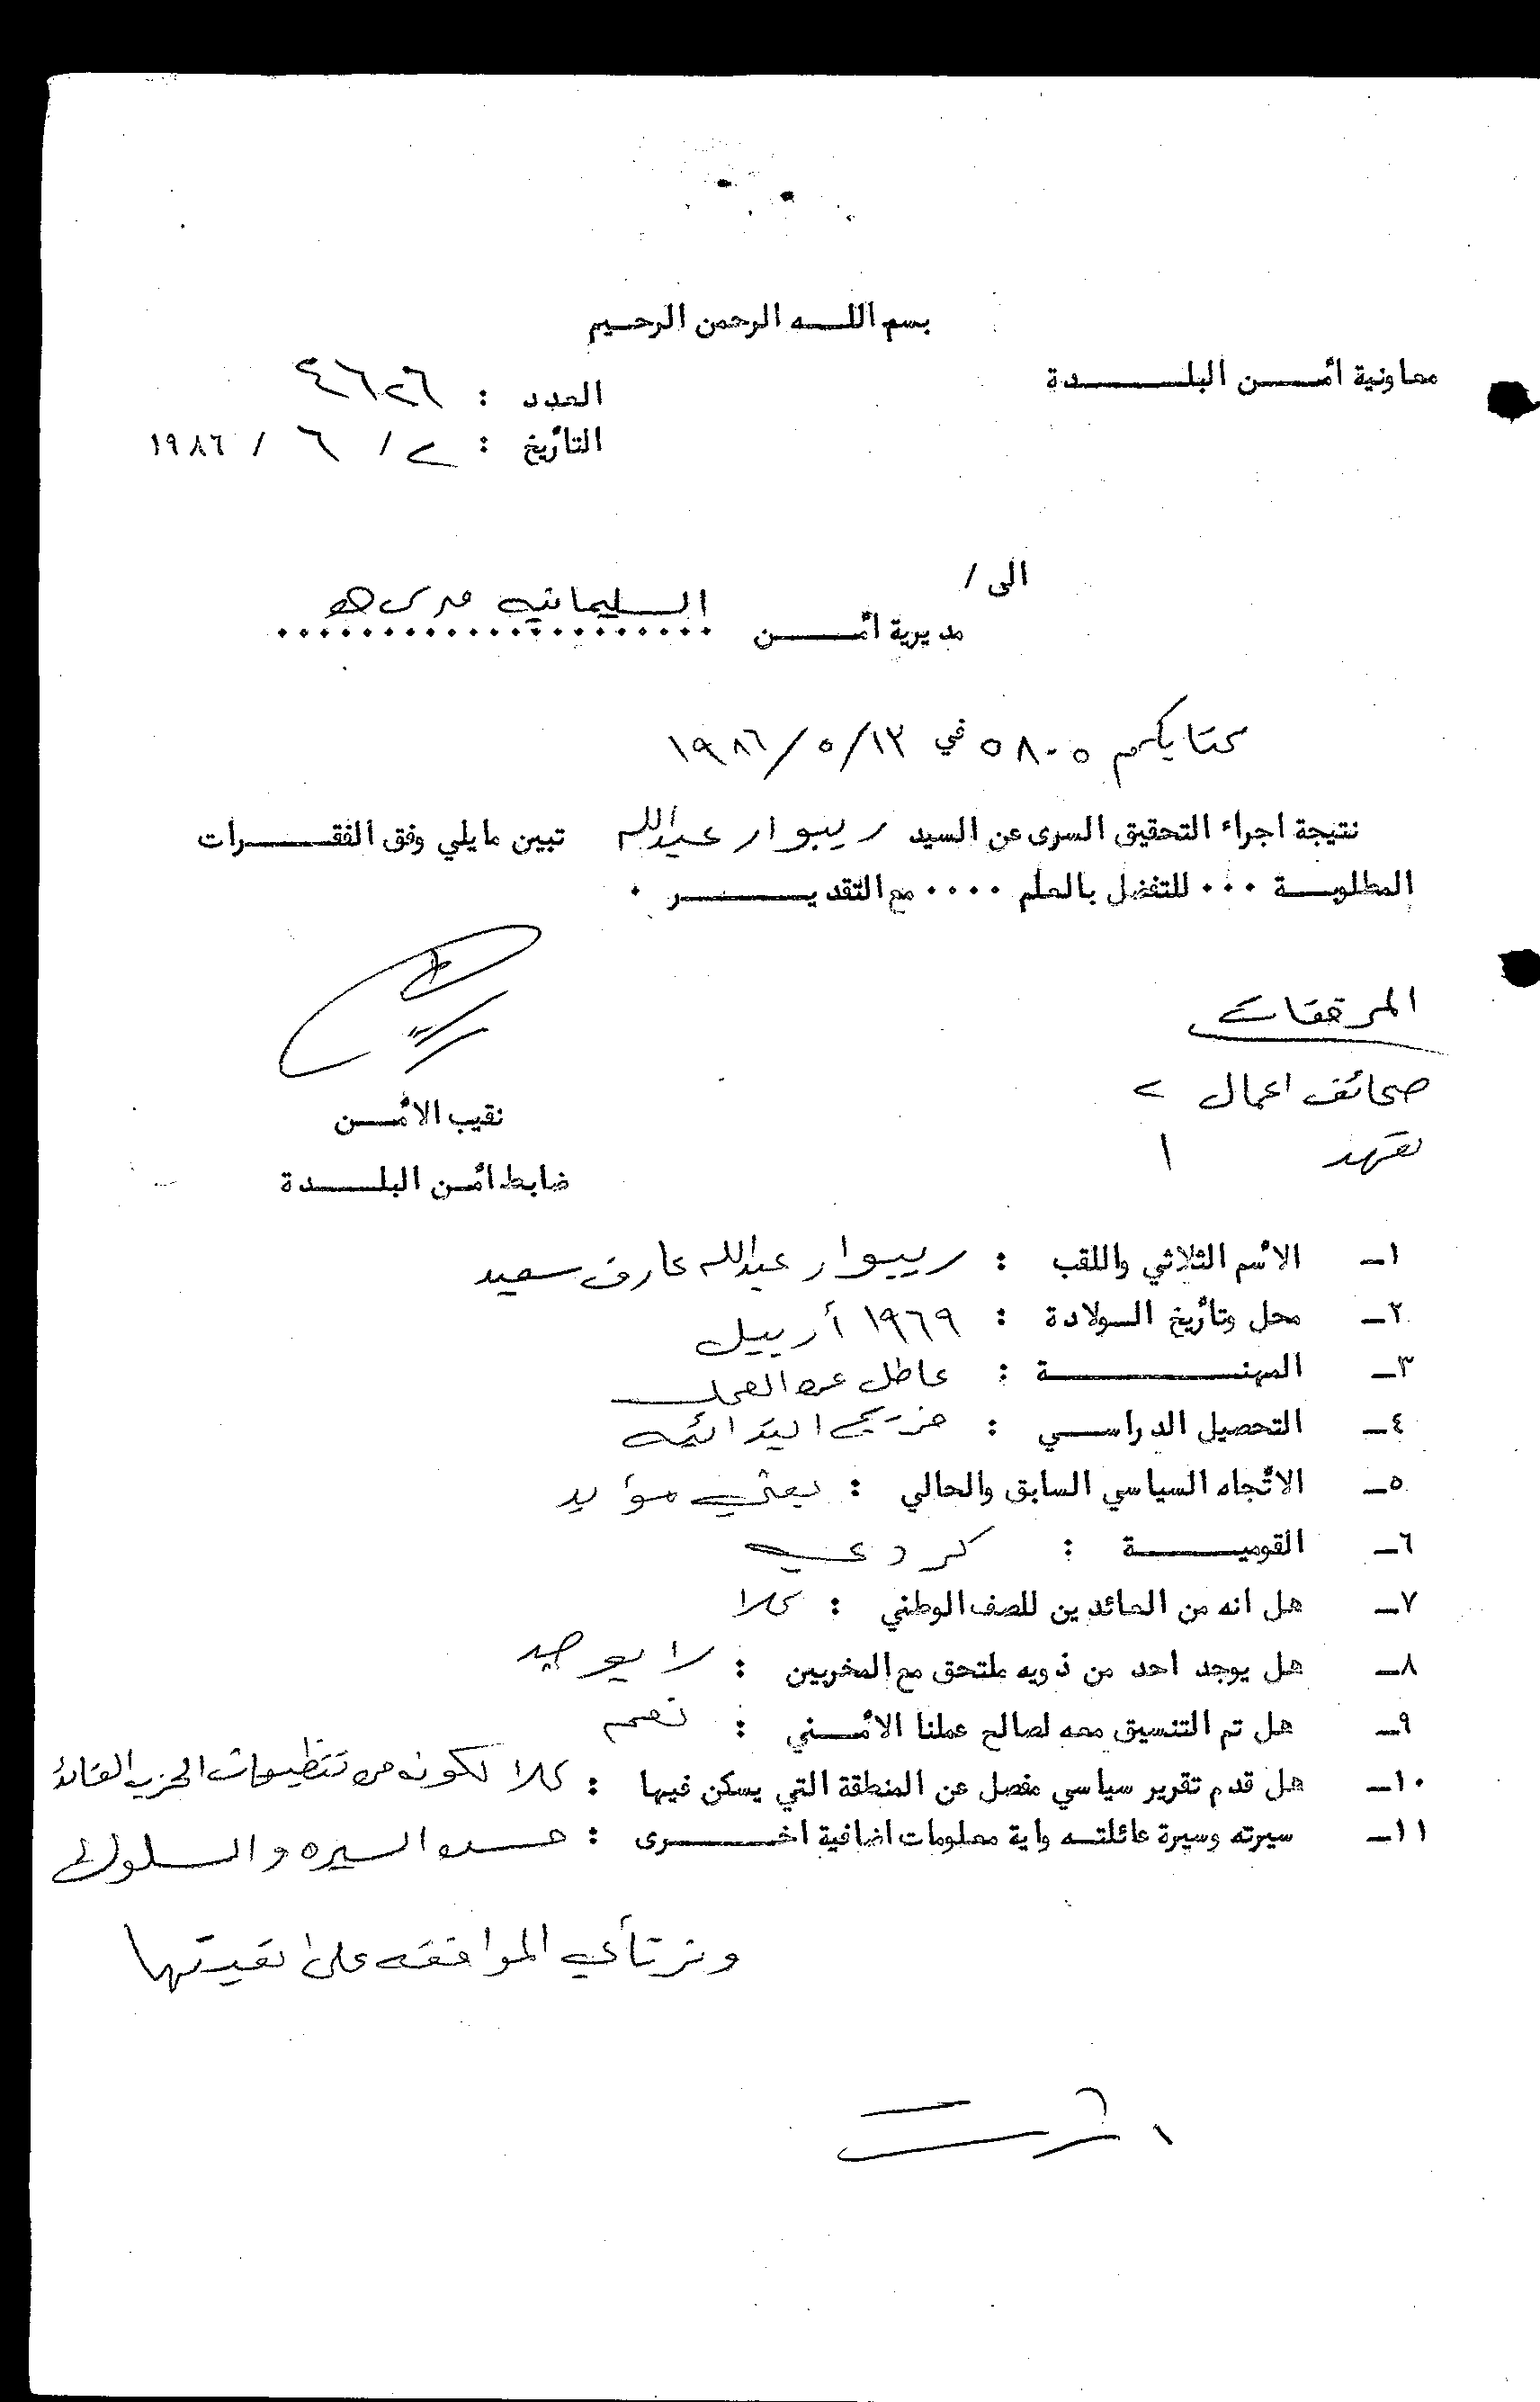 بسم اللـه الرحمن الرحيم
معاونية أمـن البلـدة
العدد : ٤٦٢٦
التأريخ : ٢ / ٦ / ١٩٨٦
الى /
مديرية أمـن السليمانيه
كتابكم ٥٨٠٥ في ١٩٨٦/٥/١٣
نتيجة اجراء التحقيق السرى عن السيد ريبوار عبدالله تبين مايلي وفق الفقـرات
المطلوبـة ٠٠٠ للتفضل بالعلم ٠٠٠٠ مع التقديـر ٠
المرفقات
صحائف اعمال ٢
تعهد ١
نقيب الأمـن
ضابط أمن البلـدة
١ـ الأسم الثلاثي واللقب : ريبوار عبدالله عارف سعيد
٢ـ محل وتأريخ الـولادة : ١٩٦٩ أربيل
٣ـ المهنـة : عاطل عن العمل
٤ـ التحصيل الدراسـي : خريج ابتدائيه
٥ـ الأتجاه السياسي السابق والحالي : بعثي مؤيد
٦ـ القوميـة : كردي
٧ـ هل انه من العائدين للصف الوطني : كلا
٨ـ هل يوجد احد من ذويه ملتحق مع المخربين : لا يوجد
٩ـ هل تم التنسيق معه لصالح عملنا الأمـني : نعم
١٠ـ هل قدم تقرير سياسي مفصل عن المنطقة التي يسكن فيها : كلا لكونه من تنظيمات الحزب القائد
١١ـ سيرته وسيرة عائلتـه واية معلومات اضافية اخـرى : حسن السيره والسلوك
ونرتأي الموافقه على